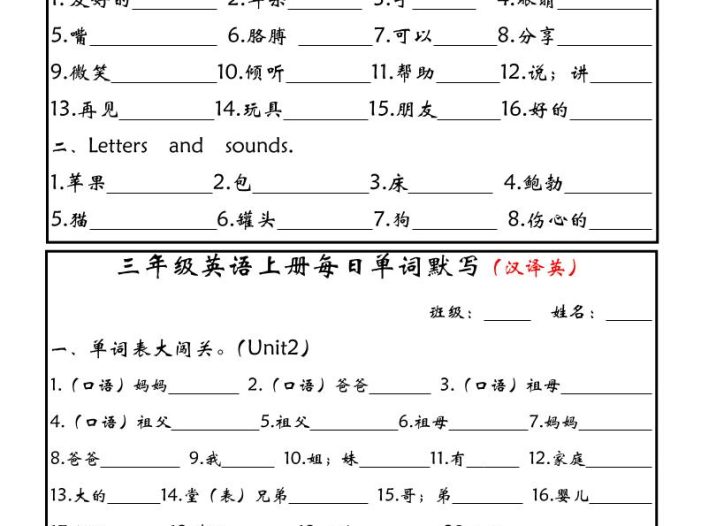 1.友好的__________ 2.苹果__________ 3.手_______ 4.眼睛_________
5.嘴______________ 6.胳膊 ________ 7.可以_______ 8.分享__________
9.微笑____________ 10.倾听_________ 11.帮助_______ 12.说；讲_______
13.再见__________ 14.玩具_________ 15.朋友_______ 16.好的_________
二、Letters and sounds.
1.苹果____________ 2.包____________ 3.床_________ 4.鲍勃__________
5.猫______________ 6.罐头__________ 7.狗_________ 8.伤心的_______
三年级英语上册每日单词默写（汉译英）
班级：_____ 姓名：_____
一、单词表大闯关。（Unit2）
1.（口语）妈妈________ 2.（口语）爸爸_______ 3.（口语）祖母__________
4.（口语）祖父__________ 5.祖父__________ 6.祖母_________ 7.妈妈________
8.爸爸_________ 9.我______ 10.姐；妹________ 11.有______ 12.家庭_______
13.大的______ 14.堂（表）兄弟_________ 15.哥；弟________ 16.婴儿_______